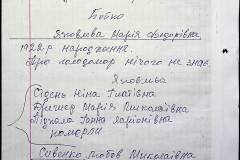 Бойко
Яковлева Марія Федорівна
1922 р. народження.
Про голодомор нічого не знає.
Яковлєва
Сідень Ніна Гнатівна
Марія Миколаївна
Ганна Ларіонівна
померли
Любов Миколаївна